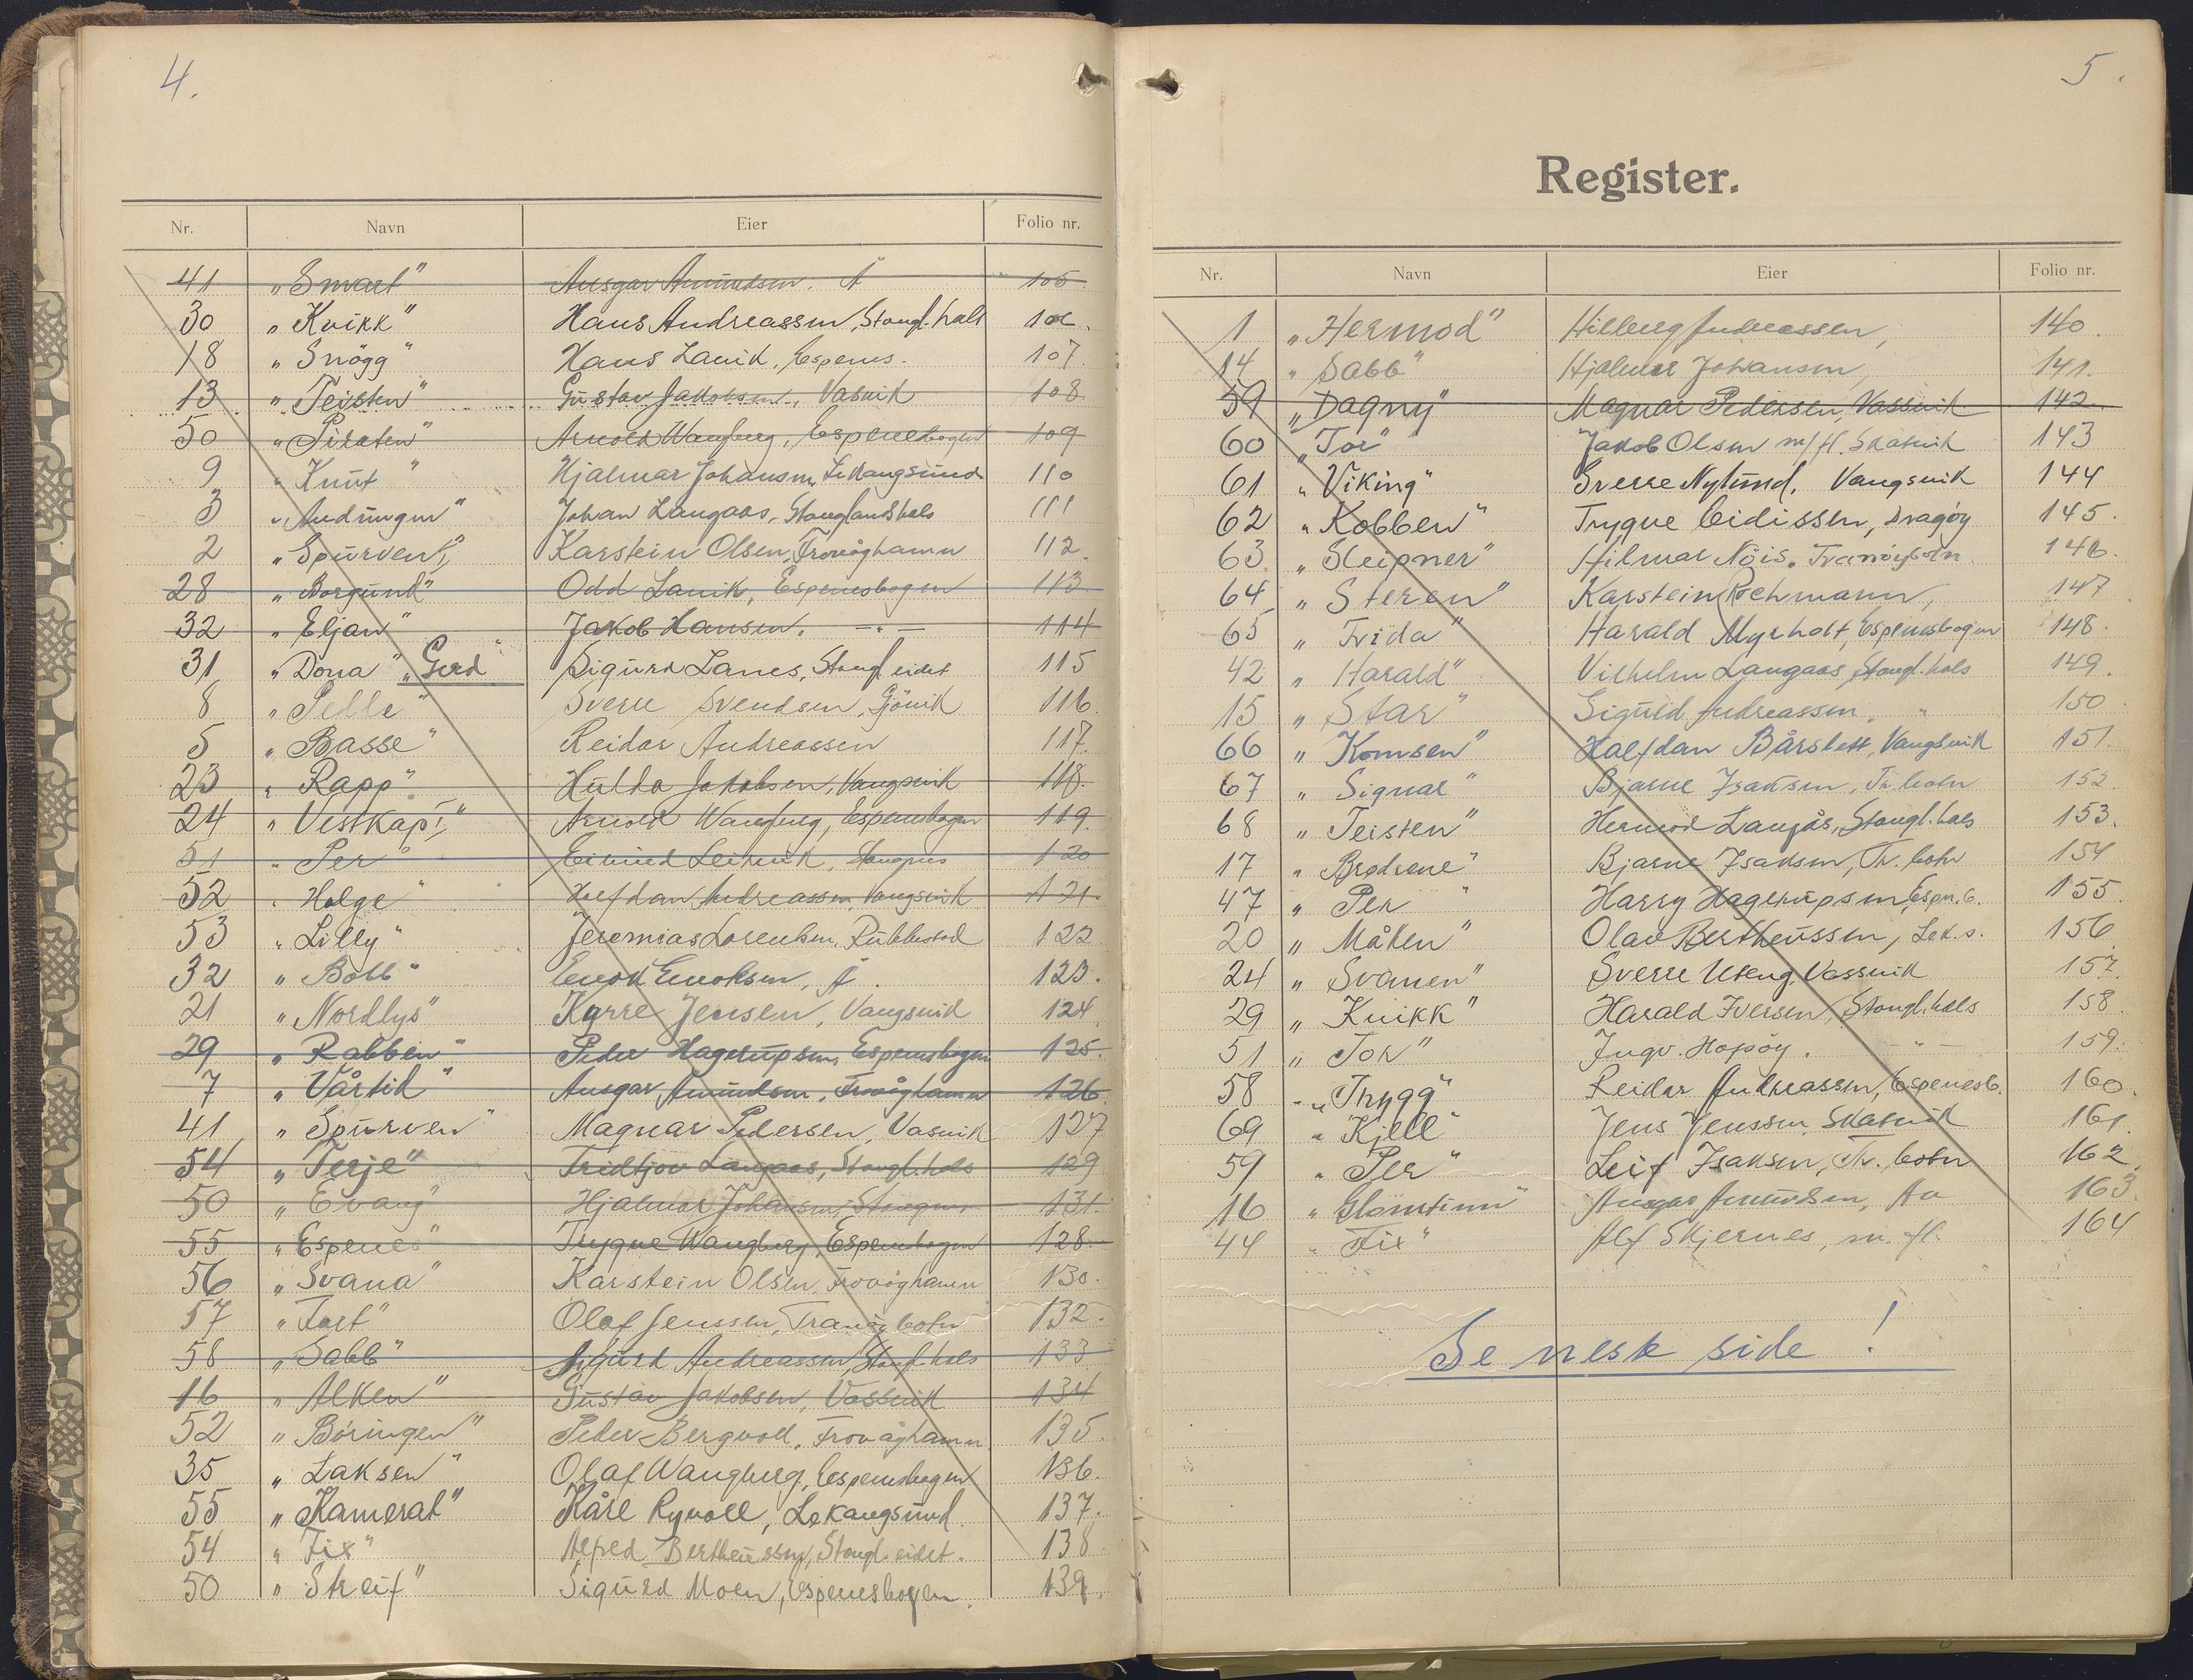 4.
Nr. Navn Eier Folio nr.
41 "Smart" Ansgar Amundsen. Å 105
30 "Kvikk" Hans Andreassen, Stangl.hals 106.
18 "Snögg" Hans Lanik, Espenes. 107.
13 "Teisten" Gustav Jakobsen, Vasvik 108
50 "Piraten" Arnold Wangberg, Espenesbogen 109
9 "Knut" Hjalmar Johansen, Lekangsund 110
3 "Andungen" Johan Langaas, Stanglandshals 111
2 "Spurven" Karstein Olsen, Frovåghamn 112.
28 "Borgund" Odd Lanik, Espenesbogen 113.
32 "Eljan" Jakob Hansen. —"— 114
31 "Dona" "Gerd" Sigurd Lanes, Stangl.eidet 115
8 "Pelle" Sverre Svendsen, Gjövik 116.
5 "Basse" Reidar Andreassen 117.
23 "Rapp" Jakobsen, Vangsvik 118.
24 "Vestkap I" Arnold Wangberg, Espenesbogen 119.
51 "Per" Stangnes 120
52 "Helge" Halfdan Andreassen, Vangsvik 121.
53 "Lilly" Jeremias Lorentsen, Rubbestad 122
32 "Bolt" Enok Enoksen, Å. 123.
21 "Nordlys" Kyrre Jensen, Vangsvik 124
29 "Rabben" Peder Hagerupsen, Espenesbogen 125.
7 "Vårsild" Ansgar Amundsen, Frovåghamn 126
41 "Spurven" Magnar Pedersen, Vasvik 127
54 "Terje" Fridtjov Langaas, Stangl.hals 129
50 "Evang" Hjalmar Johansen, Stangnes 131.
55 "Espenes" Trygve Wangberg, Espenesbogen 128
56 "Svana" Karstein Olsen, Frovåghamn 130.
57 "Fart" Olaf Jenssen, Tranöybotn 132.
58 "Sabb" Sigurd Andreassen, Stangl.hals 133
16 "Alken" Gustav Jakobsen, Vassvik 134
52 "Båringen" Peder Bergvoll, Frovåghamn 135.
35 "Laksen" Olaf Wangberg, Espenesbogen 136.
55 "Kamerat" Kåre Ryvoll, Lekangsund. 137.
54 "Fix" Alfred Bertheussen, Stangl.eidet. 138
50 "Streif" Sigurd Moen, Espenesbogen. 139.
5.
Register.
Nr. Navn Eier Folio nr.
1 "Hermod" Hilberg Andreassen, 140.
14 "Sabb" Hjalmar Johansen, 141.
59 "Dagny" Magnar Pedersen, Vassvik 142.
60 "Tor" Jakob Olsen m/fl. Skatvik 143
61 "Viking" Sverre Nylund, Vangsvik 144
62 "Kobben" Trygve Eidissen, Dragöy 145.
63 "Sleipner" Hilmar Nöis, Tranöybotn. 146.
64 "Steren" Karstein Rehmann, 147
65 "Frida" Harald Myrholt, Espenesbogen 148.
42 "Harald" Vilhelm Langaas, Stangl.hals 149.
15 "Star" Sigurd Andreassen, " 150
66 "Komsen" Halfdan Bårslett, Vangsvik 151.
67 "Signal" Bjarne Isaksen, Tr.botn 152
68 "Teisten" Hermod Langås, Stangl.hals 153.
17 "Brødrene" Bjarne Isaksen, Tr. botn 154
47 "Per" Harry Hagerupsen, Espn.b. 155
20 "Måken" Olav Bertheussen, Lek.s. 156
24 "Svanen" Sverre Uteng, Vassvik 157.
29 "Kvikk" Harald Iversen, Stangl.hals 158
51 "Tor" Ingv. Hopöy. —"— 159.
58 "Trygg" Reidar Andreassen, Espenesb. 160
69 "Kjell" Jens Jenssen, Skatvik 161.
59 "Per" Leif Isaksen, Tr. botn 162.
16 "Glomtinn" Ansgar Amundsen, Aa 163.
44 "Fix" Alf Skjernes, m. fl. 164
Se neste side!